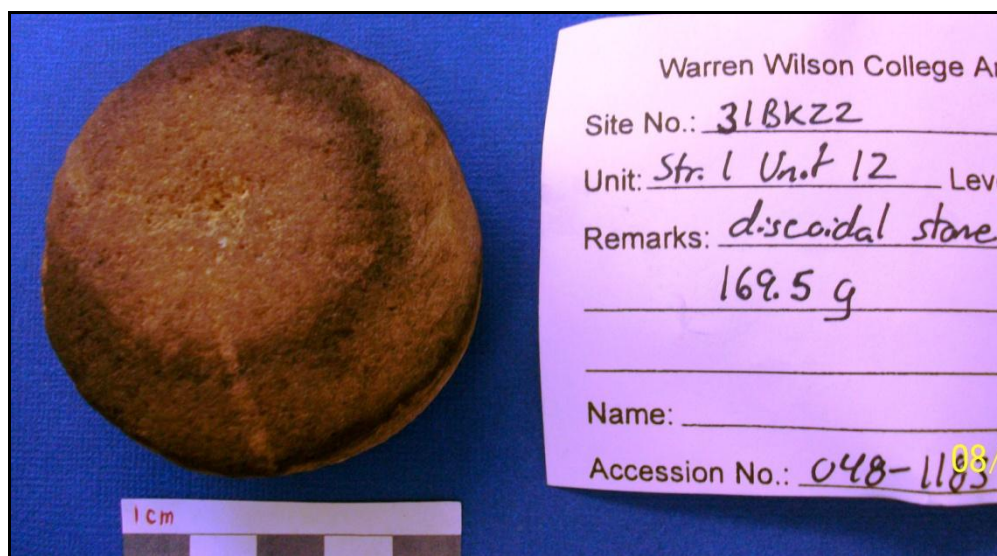 Warren Wilson College Ar
Site No.: 31BK22
Unit: Str. 1 Unit 12 Lev
Remarks: discoidal stone
169.5 g
Name:
Accession No.: 048-1183
08/
1 cm